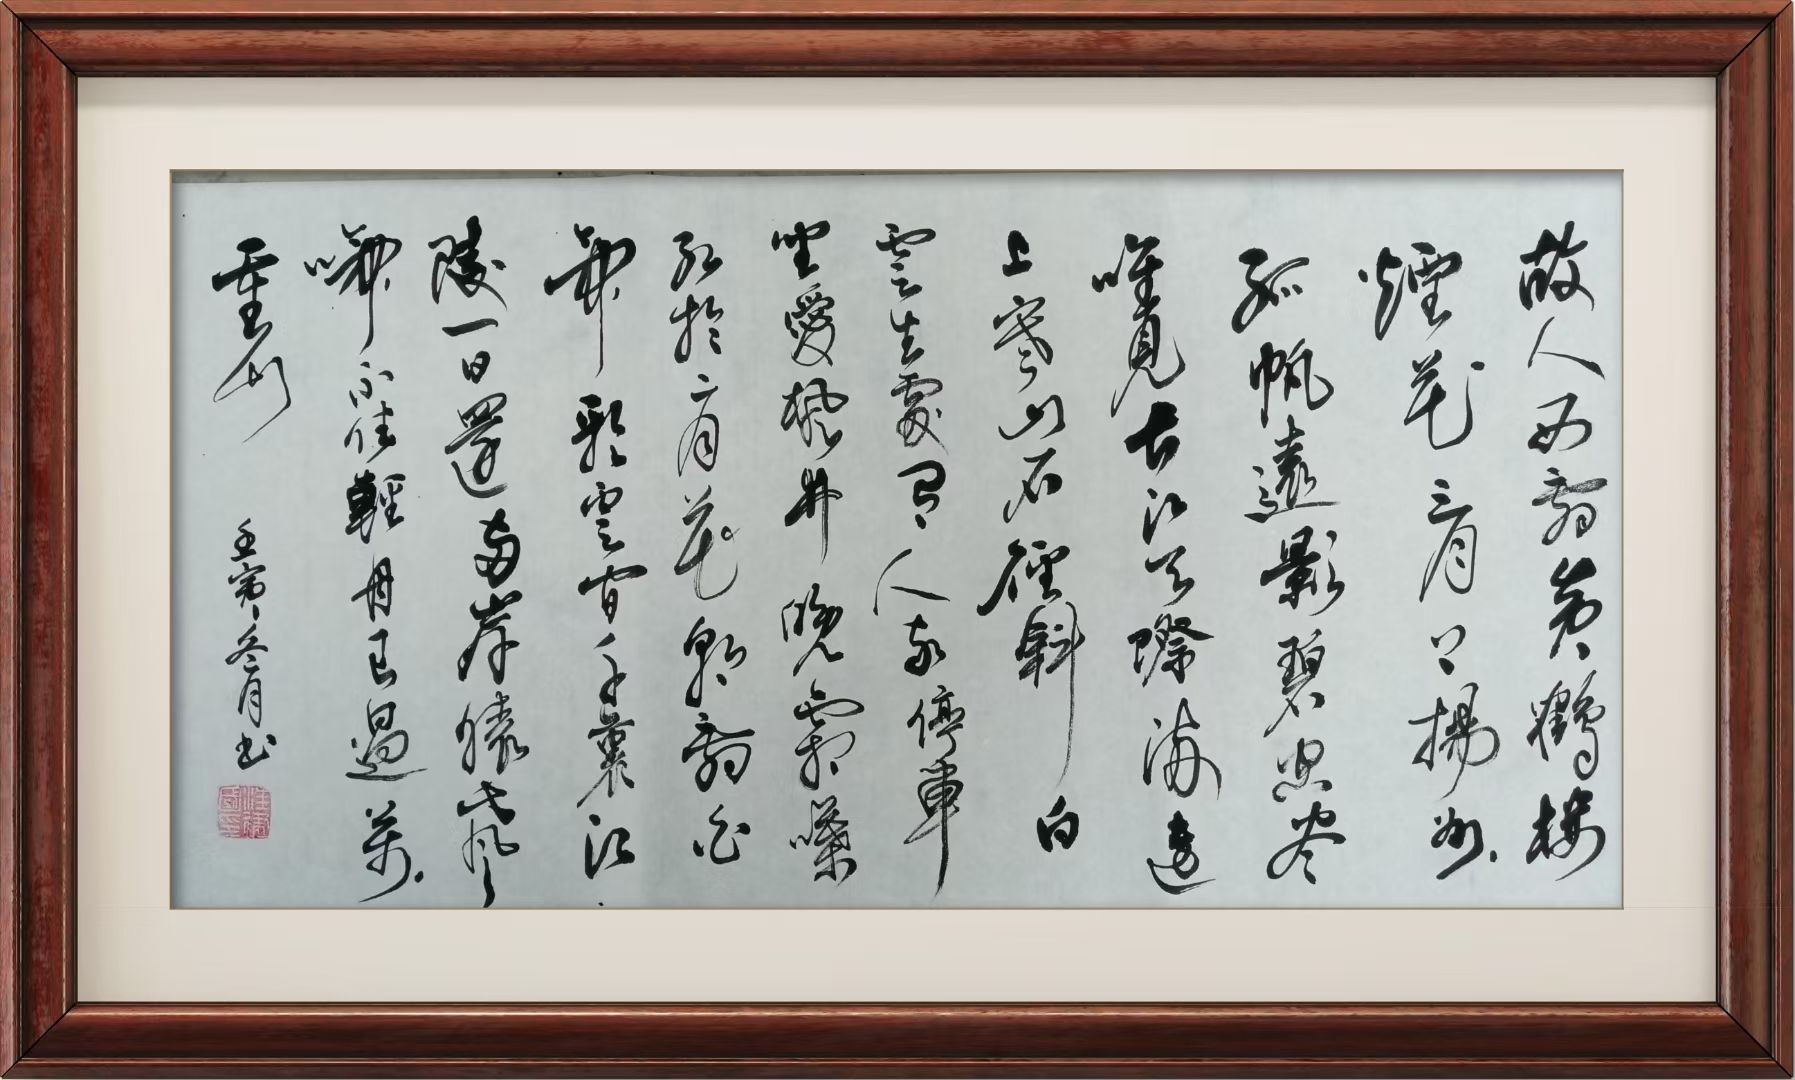 故人西辭黃鶴樓
煙花三月下揚州
孤帆遠影碧空盡
唯見長江天際流遠
上寒山石徑斜白
雲生處有人家停車
坐愛楓林晚霜葉
紅於二月花朝辭白
帝彩雲間千裏江
陵一日還兩岸猿聲
啼不住輕舟已過萬
重山
壬寅冬月書